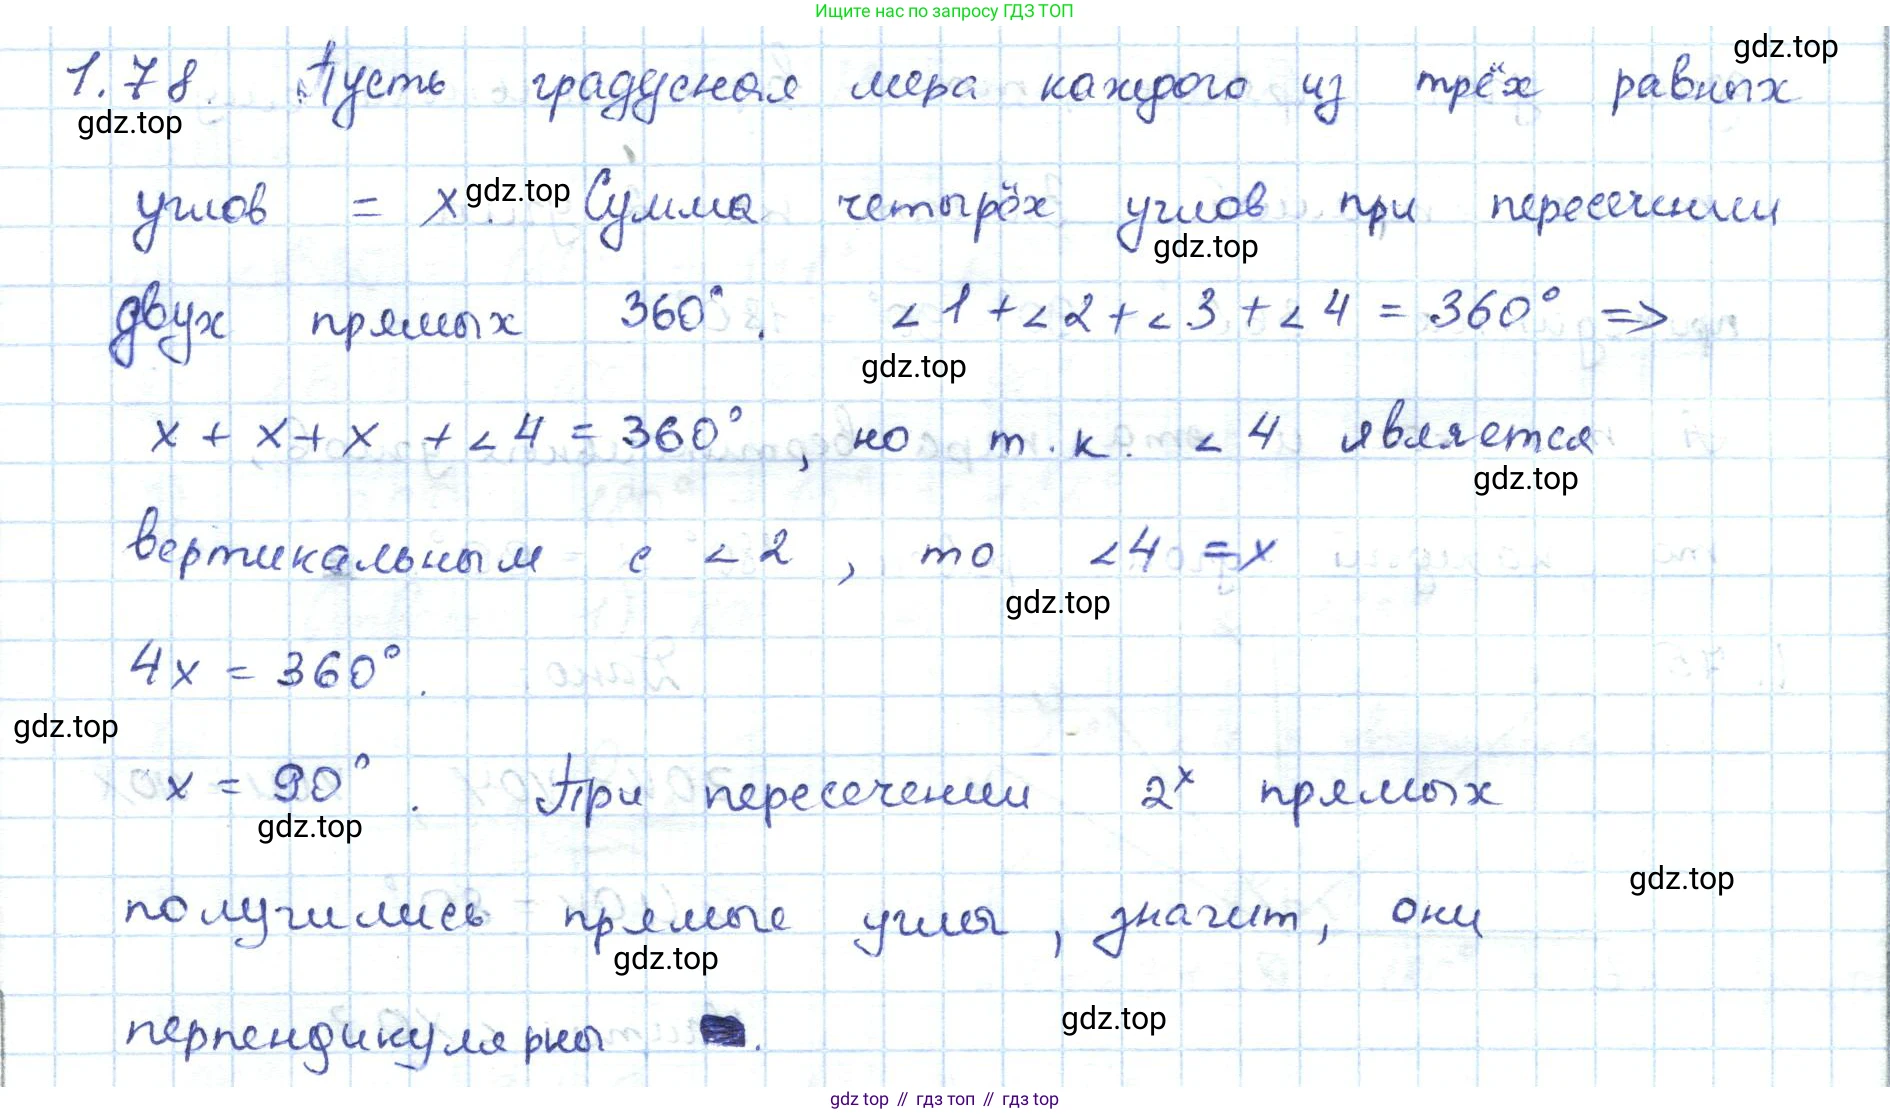 Ищите нас по запросу ГДЗ ТОП
gdz.top
1.78. Пусть градусная мера каждого из трёх равных
gdz.top
углов = x. Сумма четырёх углов при пересечении
gdz.top
gdz.top
двух прямых 360°. ∠1+∠2+∠3+∠4 = 360° =>
gdz.top
x + x + x + ∠4 = 360°, но т.к. ∠4 является
gdz.top
вертикальным с ∠2, то ∠4 = x
gdz.top
4x = 360°.
gdz.top
x = 90°. При пересечении 2ˣ прямых
gdz.top
gdz.top
получились прямые углы, значит, они
gdz.top
gdz.top
перпендикулярны .
gdz.top // гдз топ // гдз top